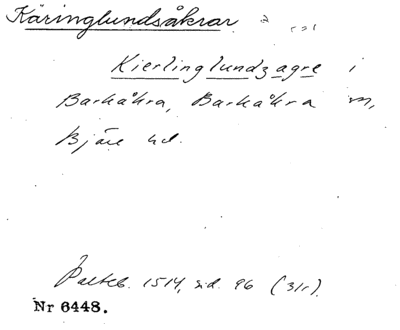 Käringlundsåkrar
Kierlinglundzagre i
Barkåkra, Barkåkra sn,
Bjäre hd.
1514, sid. 96 (31r).
Nr 6448.